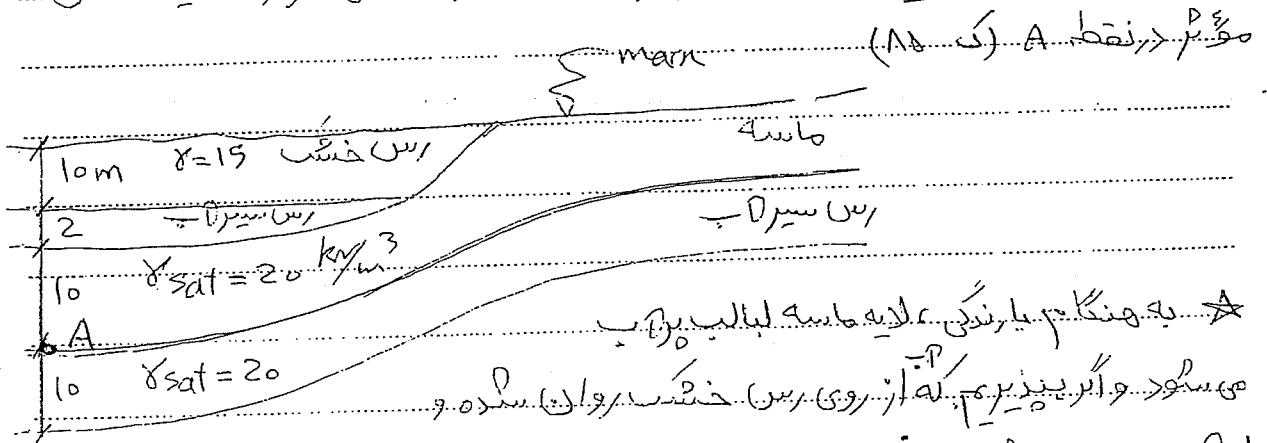 مؤثر در نقطه A (ک ۸۵)
mark
ماسه
10m γ=15 رس خشک
2 رس سیر آب
رس سیر آب
10 γsat = 20 kN/m³
A
☆ به هنگام بارندگی، لایه ماسه لبالب پر آب
10 γsat = 20
می‌شود و اگر بپذیریم که آب از روی رس خشک روان شده و